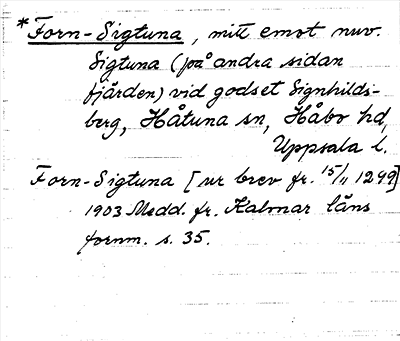 *Forn-Sigtuna, mitt emot nuv.
Sigtuna (på andra sidan
fjärden) vid godset Signhilds-
berg, Håtuna sn, Håbo hd,
Uppsala l.
Forn-Sigtuna [ur brev fr. 15/11 1299]
1903 Medd. fr. Kalmar läns
fornm. s. 35.